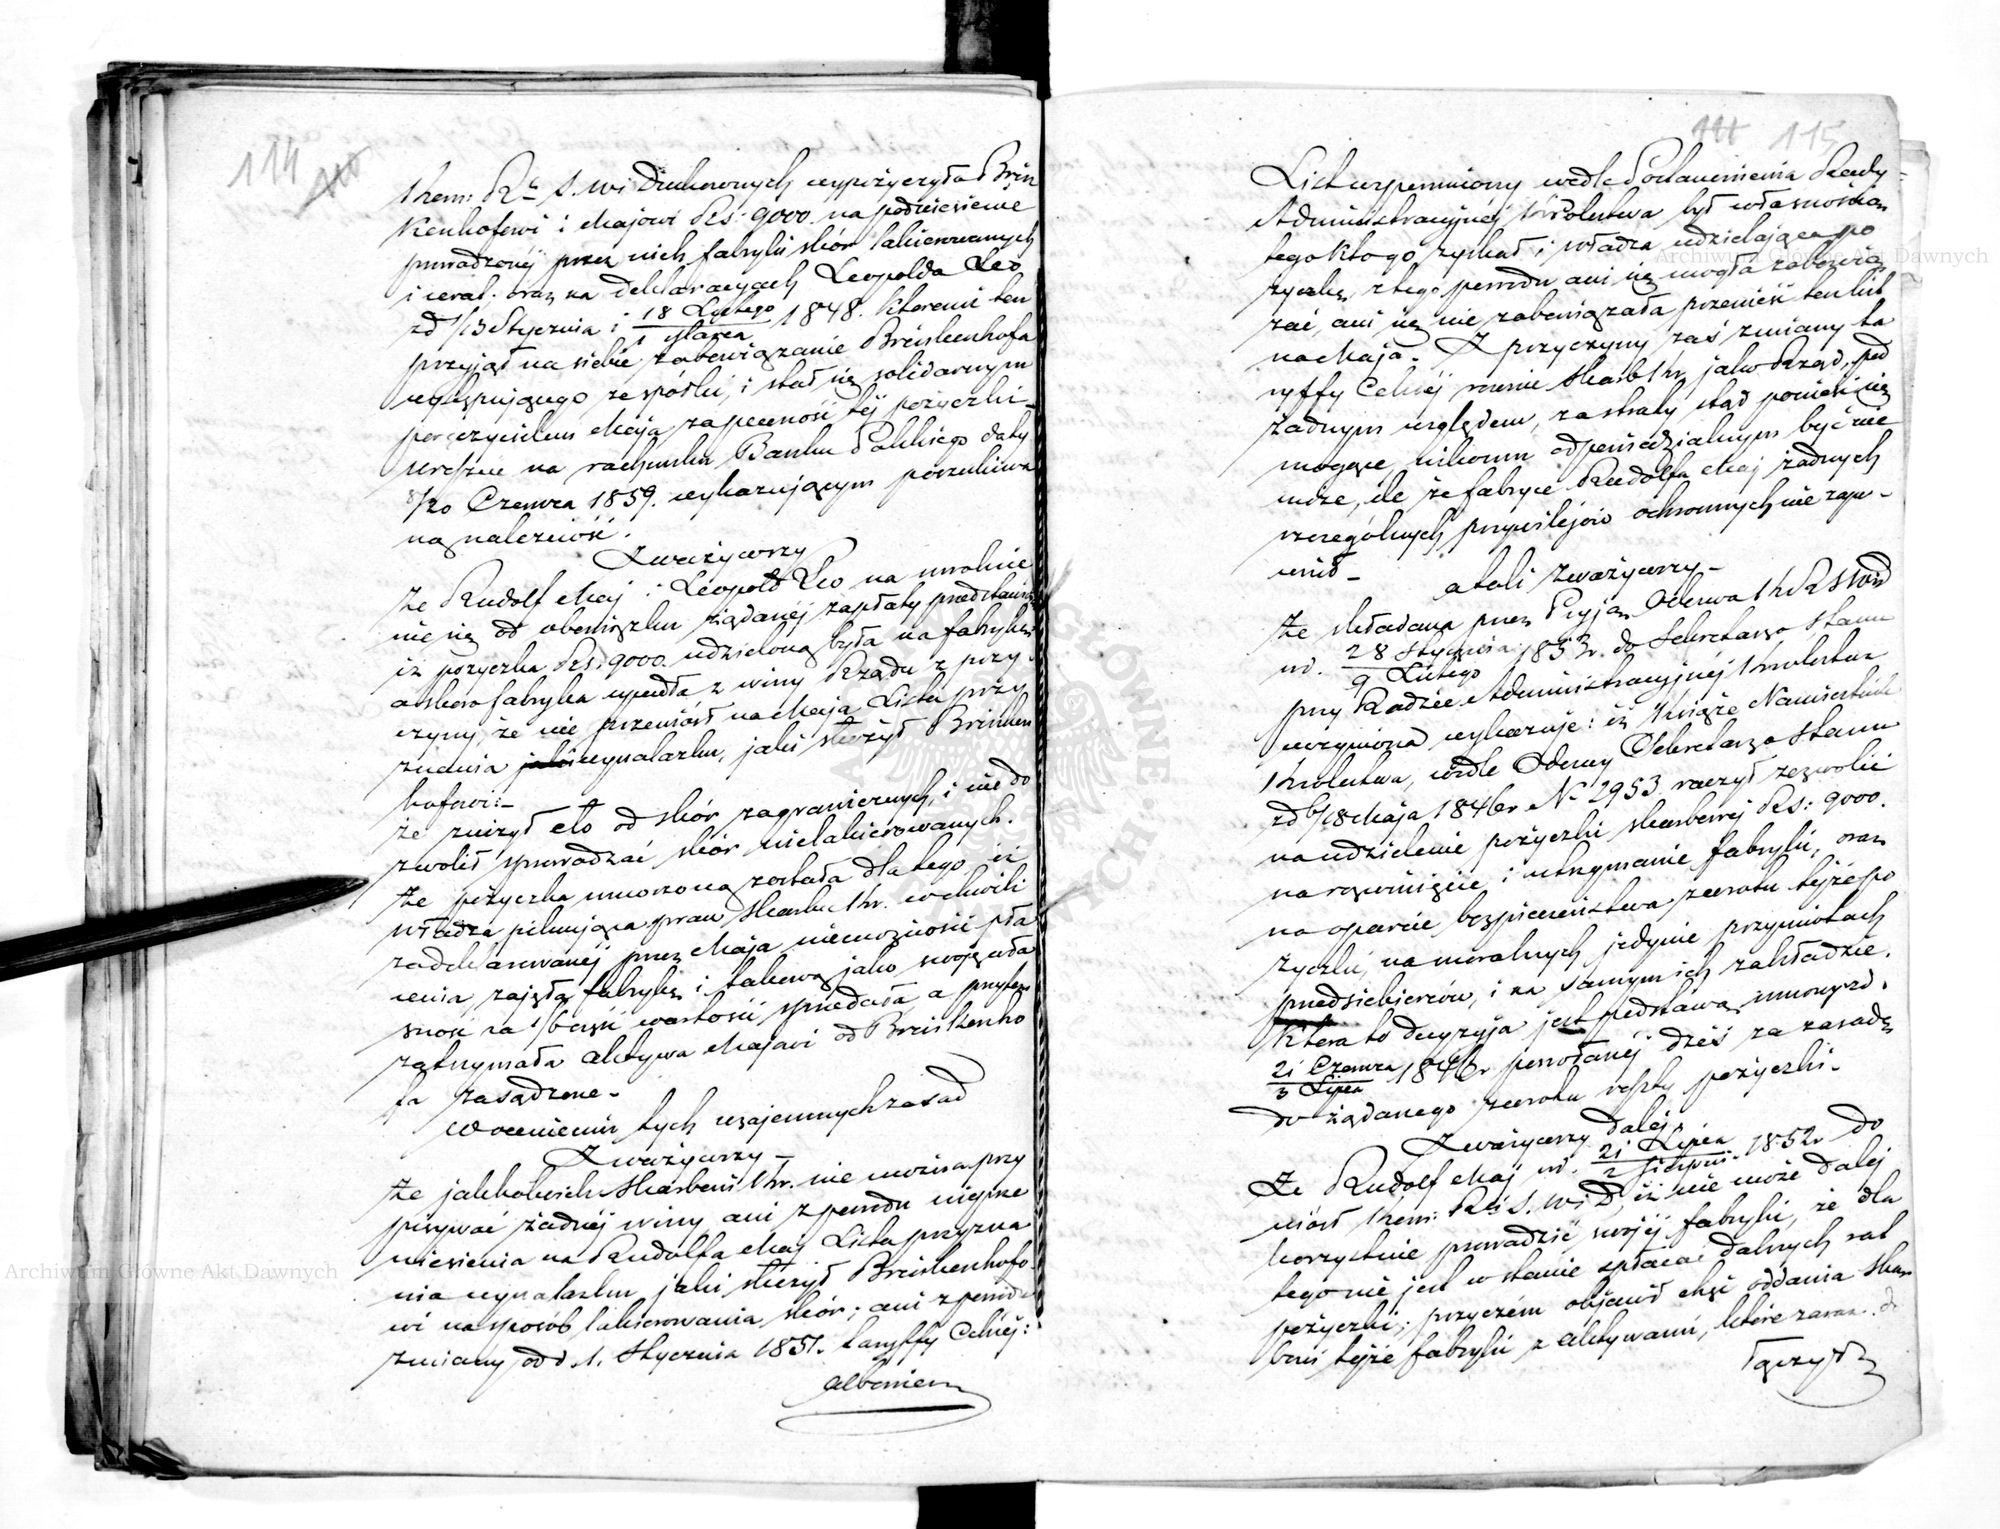 114
1 kom: Rz. S. W. i Duchownych wypożyczyła Brin
kenhofowi i Majowi Rs: 9000. na podniesienie
prowadzonéj przez nich fabryki skór lakierowanych
i cerat. oraz na deklaracyach Leopolda Leo
zd 1/13 Stycznia i 18 Lutego / 1 Marca 1848. któremi ten
przyjął na siebie zobowiązanie Breinkenhofa
występującego ze spółki, i stał się solidarnym
poręczycielem Maja za pewność téj pożyczki –
wreszcie na rachunku Banku Polskiego daty
8/20 Czerwca 1859. wykazującym poszukiwa
ną należność.
Zważywszy
że Rudolf Maj i Leopold Leo na uwolnie
nie się od obowiązku żądanéj zapłaty przedstawia
iż pożyczka Rs: 9000. udzieloną była na fabrykę
a skoro fabryka upadła z winy Rządu z przy
czyny, że nie przeniósł na Maja Listu przy
znania wynalazku, jaki służył Brinken
hofowi –
że zniżył cło od skór zagranicznych, i nie do
zwolił sprowadzać skór nielakierowanych.
że pożyczka umorzoną została dla tego iż
władza pilnująca praw Skarbu Kr. w chwili
zadeklarowanéj przez Maja niemożności pła
cenia zajęła fabrykę i takową jako swoją wła
sność za 1/6 część wartości sprzedała, a przytem
zatrzymała aktywa Majowi od Breinkenho
fa zasądzone –
W ocenieniu tych wzajemnych zasad
Zważywszy –
że jakkolwiek Skarbowi Kr. nie można przy
pisywać żadnéj winy, ani z powodu nieprze
niesienia na Rudolfa Maj Listu przyzna
nia wynalazku jaki służył Breinkenhofo
wi na sposób lakierowania skór; ani z powodu
zmiany od d. 1. Stycznia 1851. taryffy Celnéj:
albowiem
115
List wspomniony wedle Postanowienia Rady
Administracyjnéj Królestwa był własnością
tego kto go zyskał i władza udzielająca po
życzkę, z tego powodu ani się mogła zobowią
zać, ani się nie zobowiązała przenieść ten list
na Maja. Z przyczyny zaś zmiany ta
ryffy Celnéj równie Skarb Kr. jako Rząd, pod
żadnym względem, za straty stąd ponieść się
mogące, nikomu odpowiedzialnym być nie
może, ile że fabryce Rudolfa Maj żadnych
szczególnych przywilejów ochronnych nie zape –
wnił –
atoli zważywszy –
że składana przez Odezwa K. R. S. W. i D
w d. 28 Stycznia / 9 Lutego 1853 r. do Sekretarza Stanu
przy Radzie Administracyjnéj Królestwa
uczyniona wykazuje: iż Książe Namiestnik
Królestwa, wedle Odezwy Sekretarza Stanu
zd 6/18 Maja 1846 r N: 2953. raczył zezwolić
na udzielenie pożyczki skarbowéj Rs: 9000.
na rozwinięcie i utrzymanie fabryki, oraz
na oparcie bezpieczeństwa zwrotu tejże po
życzki, na moralnych jedynie przymiotach
przedsiębierców, i na samym ich zakładzie.
Która to decyzyja jest podstawą umowy zd.
21 Czerwca / 3 Lipca 1846 r powołanéj dziś za zasadę
do żądanego zwrotu reszty pożyczki –
Zważywszy daléj,
że Rudolf Maj w d. 21 Lipca / 2 Sierpnia 1852 r do
niósł Kom: Rz. S. W. i D, iż nie może daléj
korzystnie prowadzić swojéj fabryki, że dla
tego nie jest w stanie spłacać dalszych rat
pożyczki; przyczém objawił chęć oddania Skar
bowi tejże fabryki z aktywami, które zaraz do
łączył
Archiwum Główne Akt Dawnych
Archiwum Główne Akt Dawnych